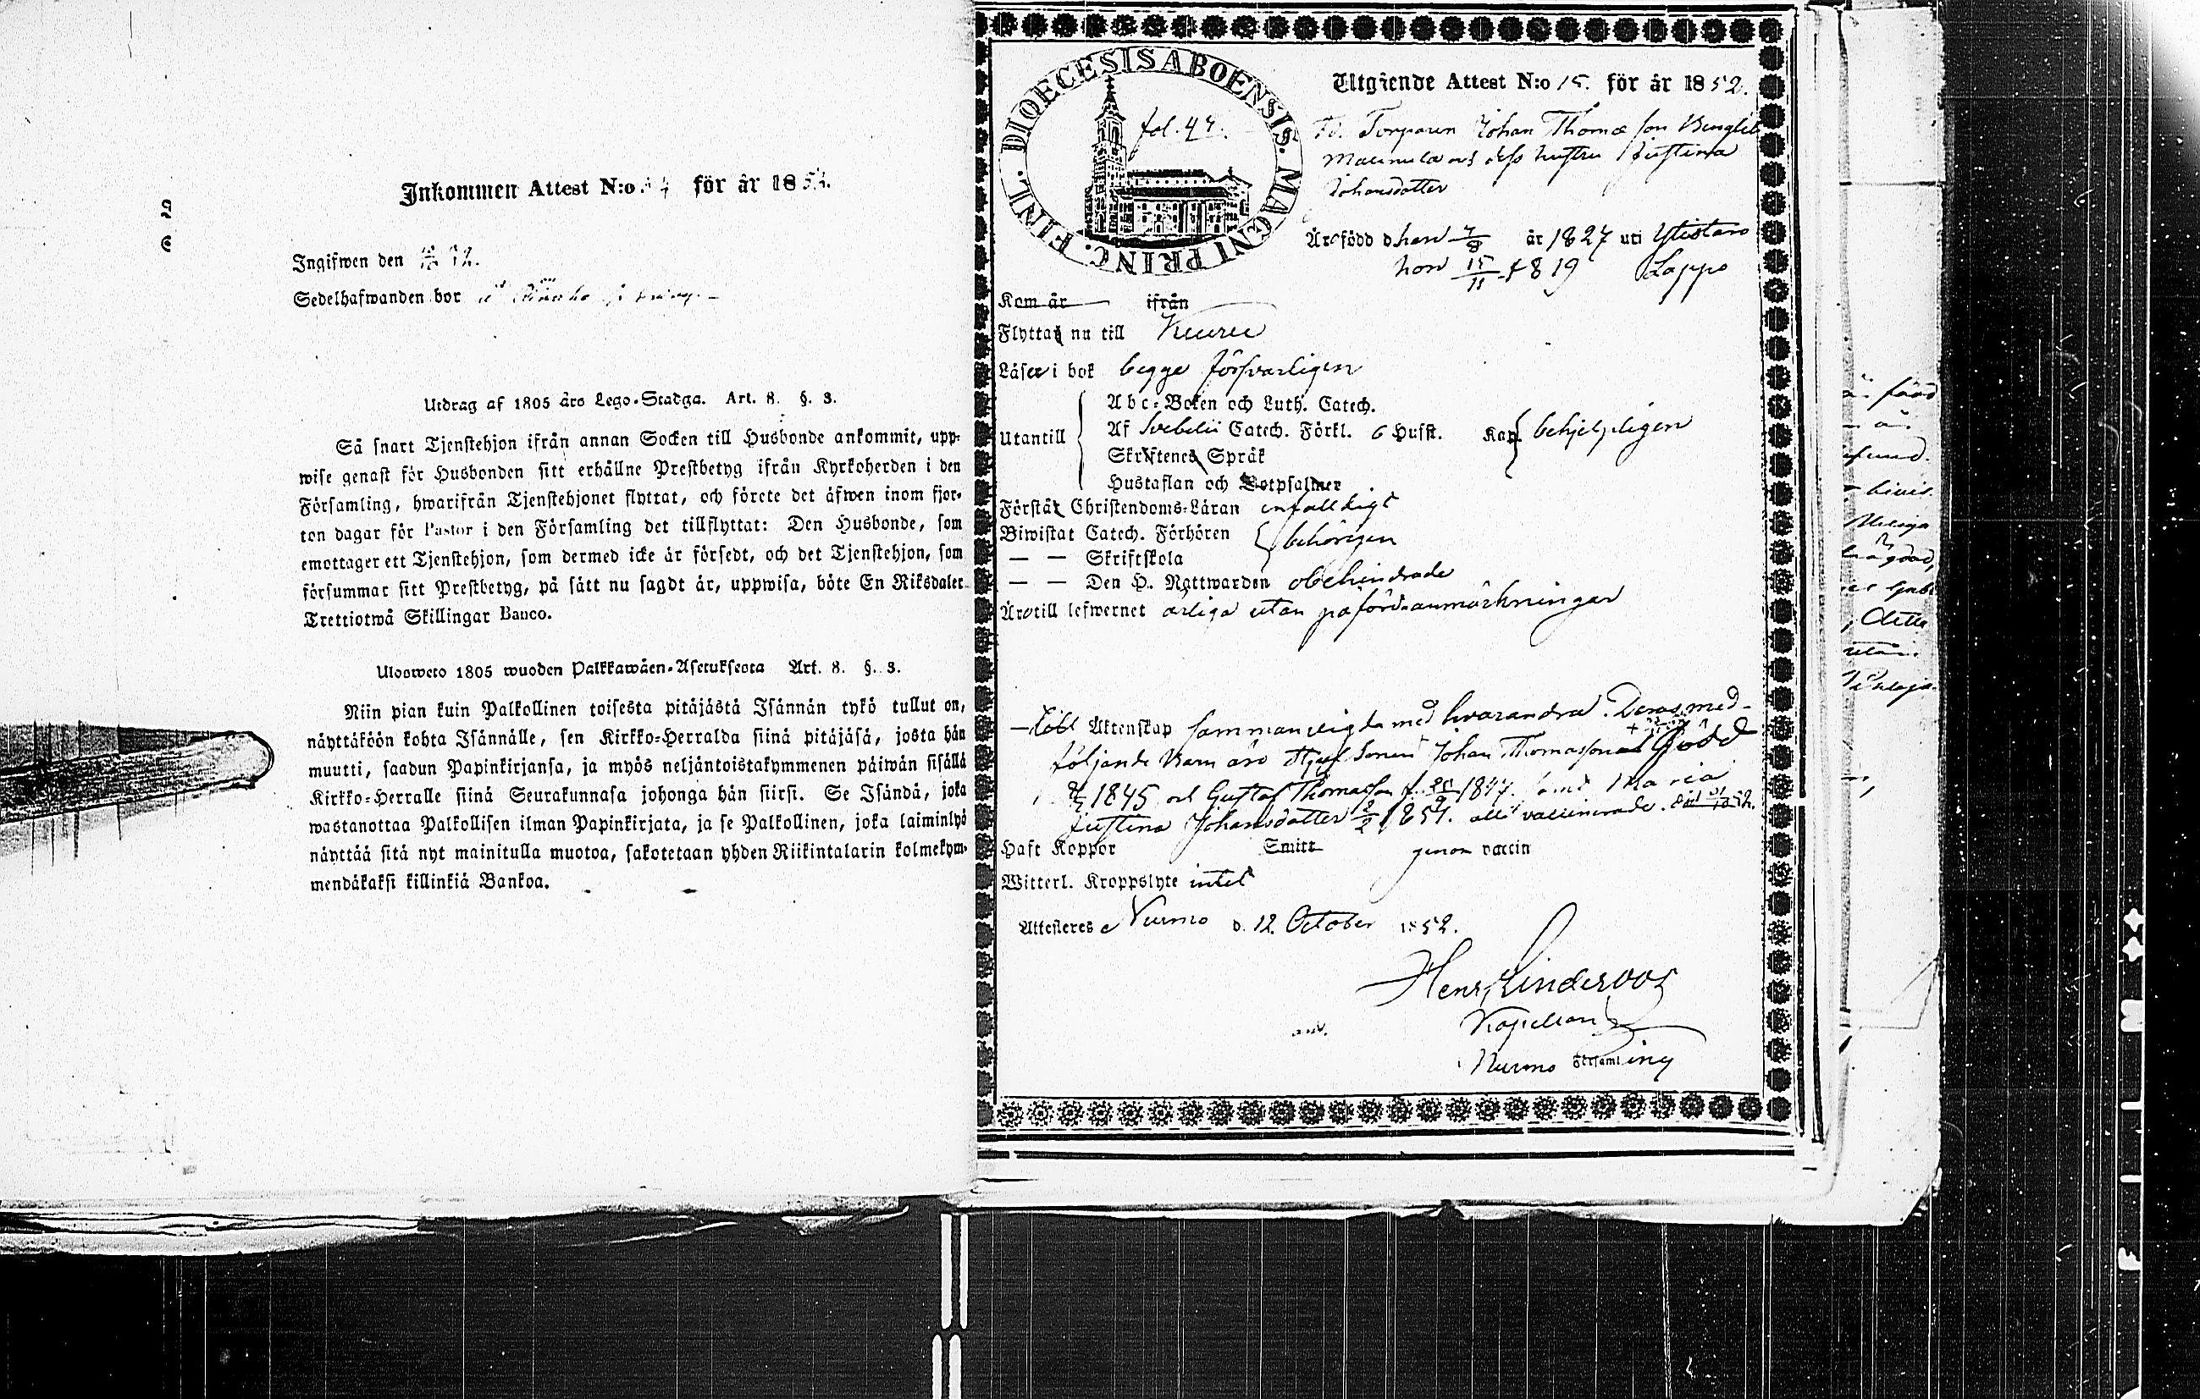 Inkommen Attest N:o för år 185
Ingifwen den
Sedelhafwanden bor
Utdrag af 1805 års Lego-Stadga. Art. 8. §. 3.
Så snart Tjenstehjon ifrån annan Socken till Husbonde ankommit, upp-
wise genast för Husbonden sitt erhållne Prestbetyg ifrån Kyrkoherden i den
Församling, hwarifrån Tjenstehjonet flyttat, och förete det äfwen inom fjor-
ton dagar för Pastor i den Församling det tillflyttat: Den Husbonde, som
emottager ett Tjenstehjon, som dermed icke är försedt, och det Tjenstehjon, som
försummar sitt Prestbetyg, på sätt nu sagdt är, uppwisa, böte En Riksdaler
Trettiotwå Skillingar Banco.
Ulosweto 1805 wuoden Palkkawäen-Asetuksesta Art. 8. §. 3.
Niin pian kuin Palkollinen toisesta pitäjästä Isännän tykö tullut on,
näyttäköön kohta Isännälle, sen Kirkko-Herralda siinä pitäjäsä, josta hän
muutti, saadun Papinkirjansa, ja myös neljäntoistakymmenen päiwän sisällä
Kirkko-Herralle siinä Seurakunnasa johonga hän siirsi. Se Isändä, joka
wastanottaa Palkollisen ilman Papinkirjata, ja se Palkollinen, joka laiminlyö
näyttää sitä nyt mainitulla muotoa, sakotetaan yhden Riikintalarin kolmekym-
mendäkaksi killinkiä Bankoa.
DIOECESIS ABOENSIS. MAGNI PRINC. FINL.
fol. 47.
Utgående Attest N:o 15. för år 1852.
Torparen Johan Thomæ son
och dess hustru Justina
Johansdotter
Äro född d han 7/8 år 1827 uti Ylistaro
hon 15/11 1819 Lappo
Kom år ifrån
Flytta nu till Keuru
Läser i bok begge försvarligen
Utantill
Abc-Boken och Luth. Catech.
Af Svebelii Catech. Förkl. 6 Hufst. Kap. behjelpligen
Skriftenes Språk
Hustaflan och Botpsalmer
Förstå Christendoms-Läran enfalldigt
Biwistat Catech. Förhören behörigen
— — Skriftskola
— — Den H. Nattwarden obehindrade
Äro till lefwernet ärliga utan påförde anmärkningar
— Löbl Äktenskap sammanvigda med hvarandra. Deras med-
följande barn äro Styf Sonen Johan Thomasson Född
1845 och Gustaf Thomasson 1847. samt Maria
Justina Johansdotter 2/2 1851. alla vaccinerade.
Haft Koppor Smitt genom vaccin
Witterl. Kroppslyte intet
Attesteres Nurmo d. 12. October 1852.
Henr. Linderoos
Kapellan
Nurmo församling